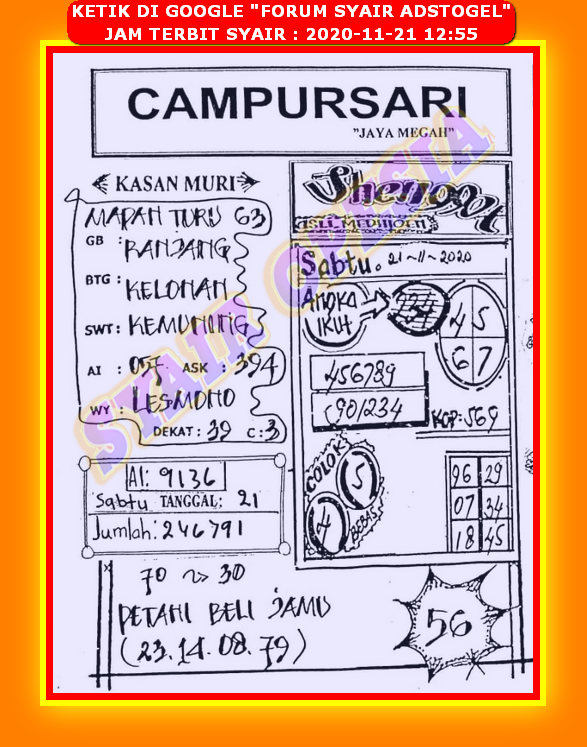 KETIK DI GOOGLE "FORUM SYAIR ADSTOGEL"
JAM TERBIT SYAIR : 2020-11-21 12:55
CAMPURSARI
"JAYA MEGAH"
KASAN MURI
MAPAN TURU 63
GB : RANJANG
BTG : KELONAN
SWT : KEMUNING
AI : 057 ASK : 394
WY : LESMONO
DEKAT : 39 C : 3
AI: 9136
Sabtu TANGGAL: 21
Jumlah: 246791
Shenogot
Sabtu. 21-11-2020
ANGKA
IKUT
4 5
6 7
456789
901234
KOP: 569
COLOK
5
4
BEBAS
96 29
07 34
18 45
70 ~> 30
PETANI BELI JAMU
(23.14.08.79)
56
SYAIR OPESIA